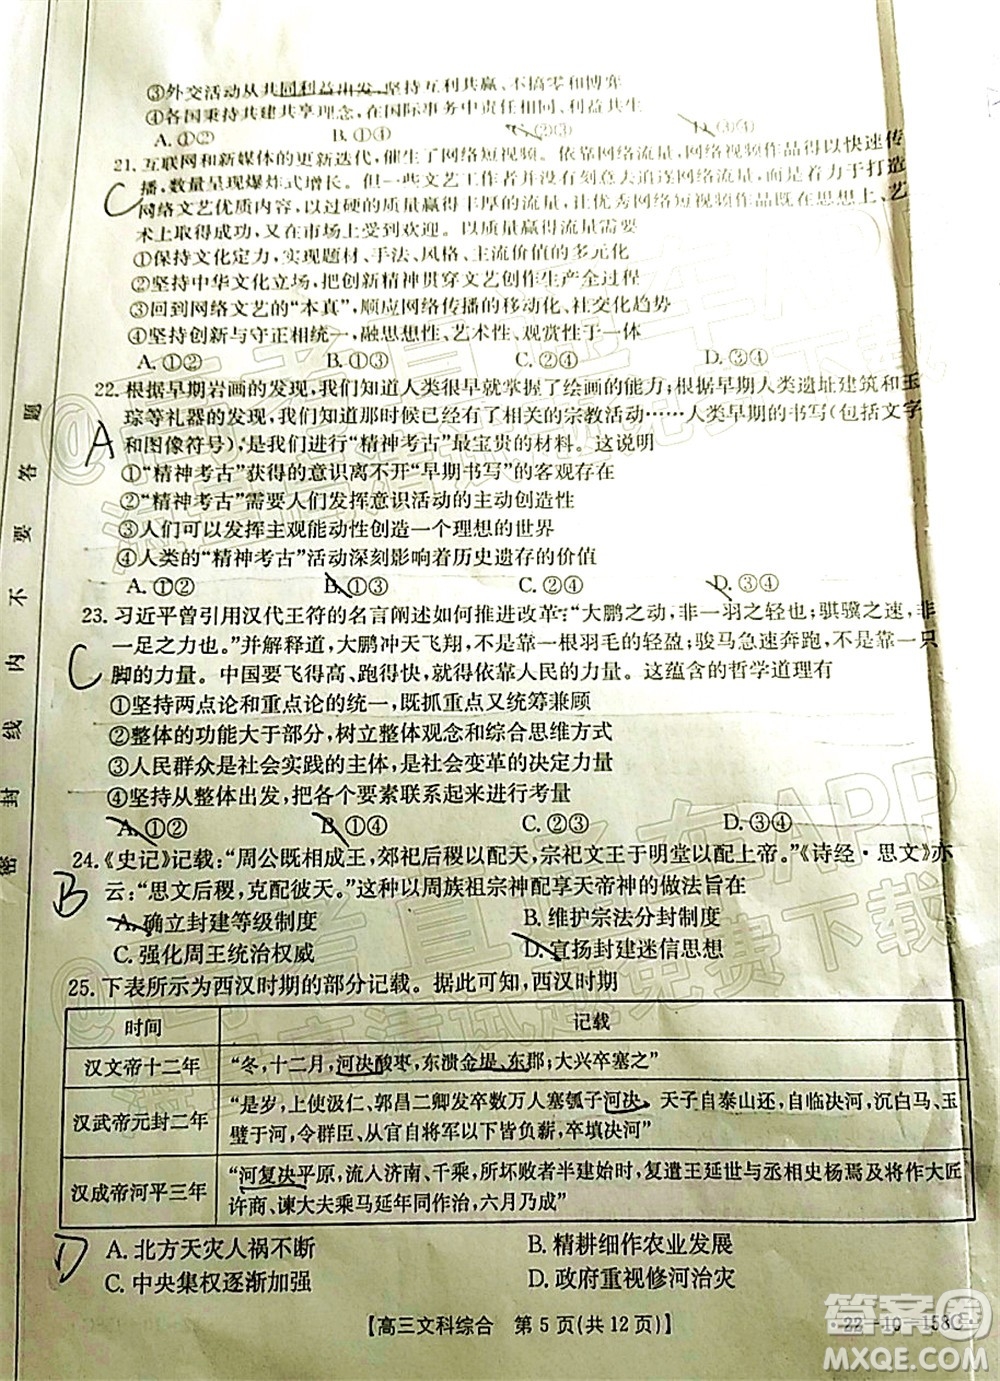 ③外交活动从共同利益出发，坚持互利共赢、不搞零和博弈
④各国秉持共建共享理念，在国际事务中责任共担、利益共生
A. ①② B. ①④ C. ②③ D. ③④
21. 互联网和新媒体的更新迭代，催生了网络短视频。依靠网络流量，网络视频作品得以快速传
播，数量呈现爆炸式增长。但一些文艺工作者并没有刻意去追逐网络流量，而是着力于打造
C
网络文艺优质内容，以过硬的质量赢得丰厚的流量，让优秀网络短视频作品既在思想上、艺
术上取得成功，又在市场上受到欢迎。以质量赢得流量需要
①保持文化定力，实现题材、手法、风格、主流价值的多元化
②坚持中华文化立场，把创新精神贯穿文艺创作生产全过程
③回到网络文艺的“本真”，顺应网络传播的移动化、社交化趋势
④坚持创新与守正相统一，融思想性、艺术性、观赏性于一体
A. ①② B. ①③ C. ②④ D. ③④
22. 根据早期岩画的发现，我们知道人类很早就掌握了绘画的能力；根据早期人类遗址建筑和玉
琮等礼器的发现，我们知道那时候我们已经有了相关的宗教活动……人类早期的书写(包括文字
A
和图像符号)，是我们进行“精神考古”最宝贵的材料。这说明
①“精神考古”获得的意识离不开“早期书写”的客观存在
②“精神考古”需要人们发挥意识活动的主动创造性
③人们可以发挥主观能动性创造一个理想的世界
④人类的“精神考古”活动深刻影响着历史遗存的价值
A. ①② B. ①③ C. ②④ D. ③④
23. 习近平曾引用汉代王符的名言阐述如何推进改革：“大鹏之动，非一羽之轻也；骐骥之速，非
一足之力也。”并解释道，大鹏冲天飞翔，不是靠一根羽毛的轻盈；骏马急速奔跑，不是靠一只
C
脚的力量。中国要飞得高、跑得快，就得依靠人民的力量。这蕴含的哲学道理有
①坚持两点论和重点论的统一，既抓重点又统筹兼顾
②整体的功能大于部分，树立整体观念和综合思维方式
③人民群众是社会实践的主体，是社会变革的决定力量
④坚持从整体出发，根据各个要素的联系进行考量
A. ①③ B. ①④ C. ②③ D. ②④
24. 《史记》记载：“周公既相成王，郊祀后稷以配天，宗祀文王于明堂以配上帝。”《诗经·思文》亦
云：“思文后稷，克配彼天。”这种以周族祖宗神配享天帝神的做法旨在
B
A. 确立封建等级制度 B. 维护宗法分封制度
C. 强化周王统治权威 D. 宣扬封建迷信思想
25. 下表所示为西汉时期的部分记载。据此可知，西汉时期
时间 记载
汉文帝十二年 “冬，十二月，河决酸枣，东溃金堤、东郡；大兴卒塞之”
汉武帝元封二年 “是岁，上使汲仁、郭昌二卿发卒数万人塞瓠子河决。天子自泰山还，自临决河，沉白马、玉
璧于河，令群臣、从官自将军以下皆负薪，卒填决河”
汉成帝河平三年 “河复决平原，流入济南、千乘，所坏败者半建始时，复遣王延世与丞相史杨焉及将作大匠
许商、谏大夫乘马延年同作治，六月乃成”
D
A. 北方天灾人祸不断 B. 精耕细作农业发展
C. 中央集权逐渐加强 D. 政府重视修河治灾
【高三文科综合 第5页(共12页)】 ·22－10－158C·
密 封 线 内 不 要 答 题
答案圈
MXQE.COM